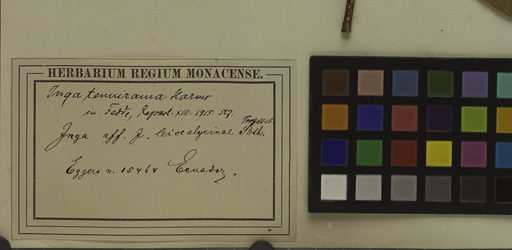 HERBARIUM REGIUM MONACENSE.
Inga tenuirama Harms
in Fedde, Repert. XIII. 1915
Inga aff. J. leiocalycinae Bth.
Eggers n. 15464 Ecuador.